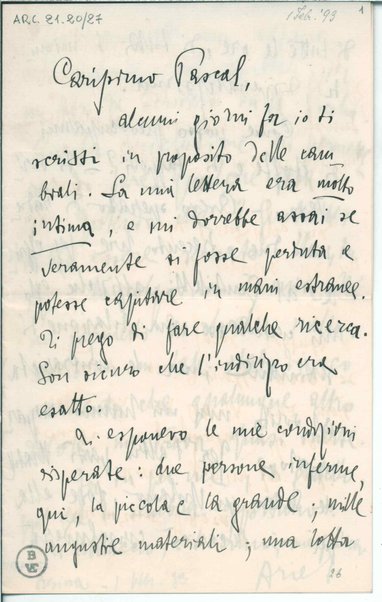 AR.C. 21.20/27
1 Feb. '93
1
Carissimo Pascal,
alcuni giorni fa io ti
scrissi in proposito delle cam
biali. La mia lettera era molto
intima, e mi dorrebbe assai se
veramente si fosse perduta e
potesse capitare in mani estranee.
Ti prego di fare qualche ricerca.
Son sicuro che l'indirizzo era
esatto.
Ti esponevo le mie condizioni
disperate: due persone inferme,
qui, la piccola e la grande; mille
angustie materiali; una lotta
26